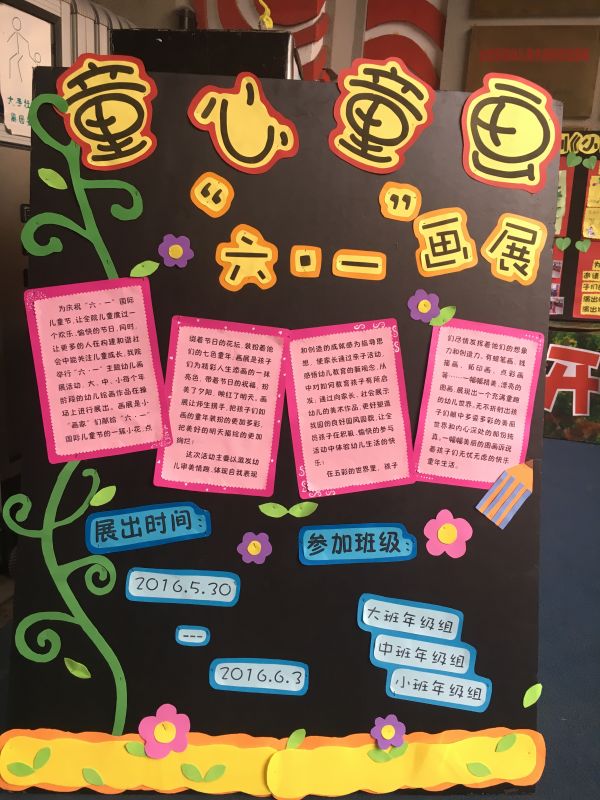 童心童画
“六·一”画展
为庆祝“六·一”国际
儿童节，让全院儿童度过一
个欢乐、愉快的节日，同时，
让更多的人在构建和谐社
会中能关注儿童成长，我院
举行“六·一”主题幼儿画
展活动，大、中、小每个年
阶段的幼儿绘画作品在操
场上进行展出。画展是小
“画家”们献给“六·一”
国际儿童节的一簇小花，点
缀着节日的花坛，装扮着他
们的七色童年，画展是孩子
们为精彩人生添画的一抹
亮色，带着节日的祝福，扮
美了夕阳，映红了明天。画
展让师生携手，把我们如
画的童年装扮的更加多彩，
把美好的明天描绘的更加
绚烂！
这次活动主要以激发幼
儿审美情趣，体现自我表现
和创造的成就感为指导思
想，使家长通过亲子活动，
感悟幼儿教育的新观念，从
中对如何教育孩子有所启
发，通过向家长、社会展示
幼儿的美术作品，更好塑造
我园的良好园风园貌，让全
园孩子在积极、愉快的参与
活动中体验幼儿生活的快
乐！
在五彩的世界里，孩子
们尽情发挥着他们的想象
力和创造力，有蜡笔画、线
描画、拓印画、点彩画
等……一幅幅精美、漂亮的
图画，展现出一个充满童趣
的幼儿世界，无不折射出孩
子们眼中多姿多彩的美丽
世界和内心深处的那份纯
真，一幅幅美丽的图画诉说
着孩子们无忧无虑的快乐
童年生活。
展出时间：
2016.5.30
---
2016.6.3
参加班级：
大班年级组
中班年级组
小班年级组